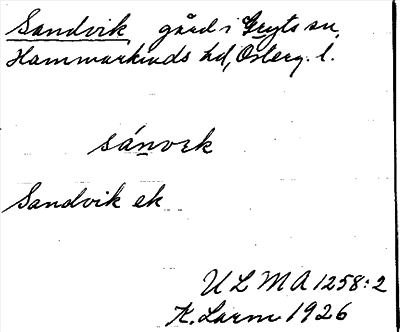 Sandvik gård i Gryts sn,
Hammarkinds hd, Österg. l.
sánvɩk
Sandvik ek
ULMA 1258:2
K. Larm 1926